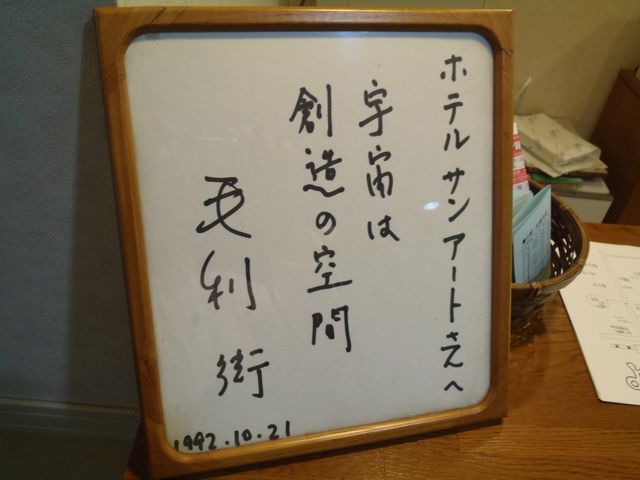 ホテル サンアートさんへ
宇宙は
創造の空間
毛利 衛
1992.10.21